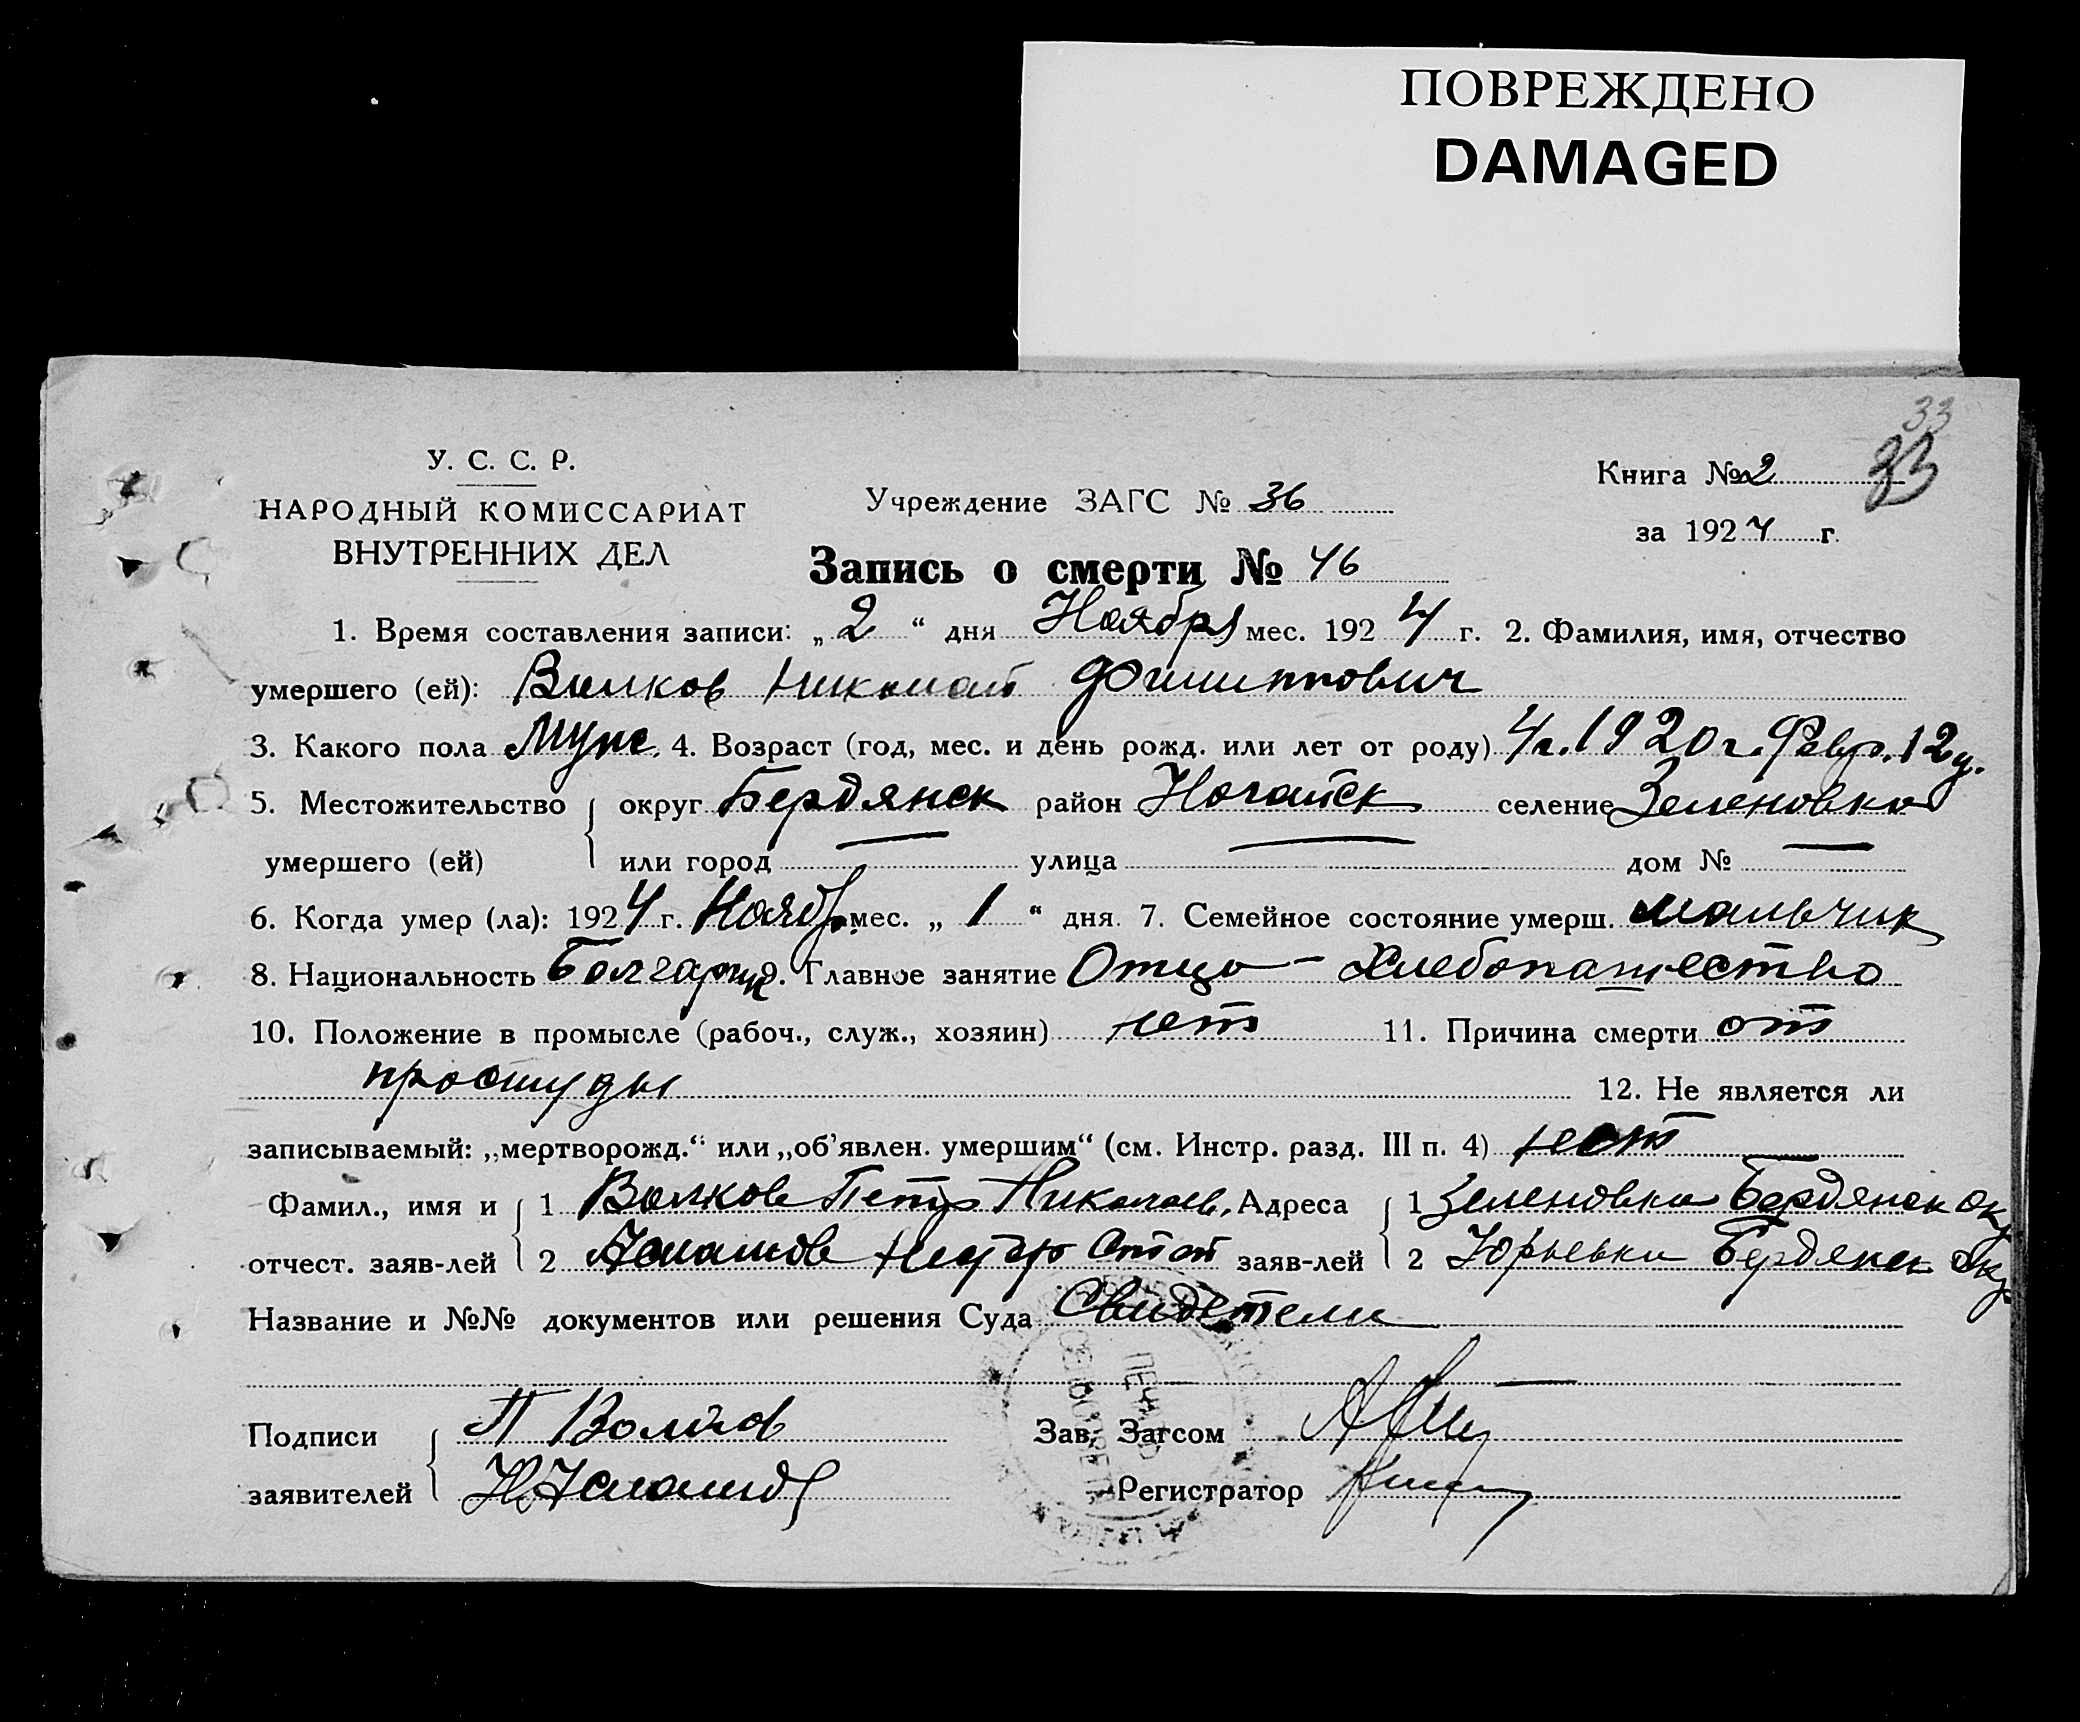 ПОВРЕЖДЕНО
DAMAGED
33
33
У. С. С. Р.
НАРОДНЫЙ КОМИССАРИАТ
ВНУТРЕННИХ ДЕЛ
Учреждение ЗАГС № 36
Книга № 2
за 1924 г.
Запись о смерти № 46
1. Время составления записи: „ 2 “ дня Ноября мес. 1924 г. 2. Фамилия, имя, отчество
умершего (ей): Волков Николай Филиппович
3. Какого пола Муж. 4. Возраст (год, мес. и день рожд. или лет от роду) 4 г. 1920 г. Февр. 12 д.
5. Местожительство округ Бердянск район Ногайск селение Зеленовка
умершего (ей) или город — улица — дом № —
6. Когда умер (ла): 1924 г. Ноябр. мес. „ 1 “ дня. 7. Семейное состояние умерш. мальчик
8. Национальность 9. Главное занятие Отца - Хлебопашество
10. Положение в промысле (рабоч., служ., хозяин) нет 11. Причина смерти от
простуды 12. Не является ли
записываемый: „мертворожд.“ или „об’явлен. умершим“ (см. Инстр. разд. III п. 4) нет
Фамил., имя и 1 Волков Петр Николаев. Адреса 1 Зеленовка Бердянск окр
отчест. заяв-лей 2 заяв-лей 2 Юрьевка Бердянск окр
Название и №№ документов или решения Суда Свидетели
Подписи П Волков Зав. Загсом
заявителей Регистратор
ПЕЧАТЬ
СЕЛЬСОВЕТА